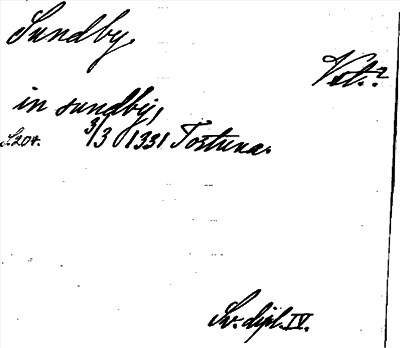 Sundby.
Vst.?
in sundby,
S. 204. 3/3 1331 Tortuna.
Sv. dipl. IV.